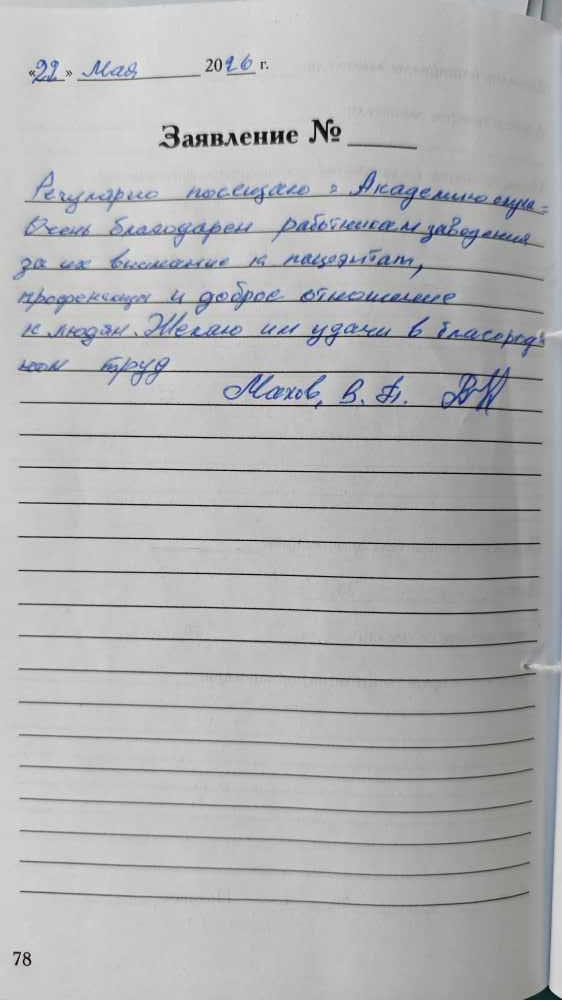 «22» Мая 2026 г.
Заявление №
Регулярно посещаю "Академию слуха"
Очень благодарен работникам заведения
за их внимание к пациентам,
и доброе отношение
к людям. Желаю им удачи в благород-
ном труд
Махов, В. П.
78